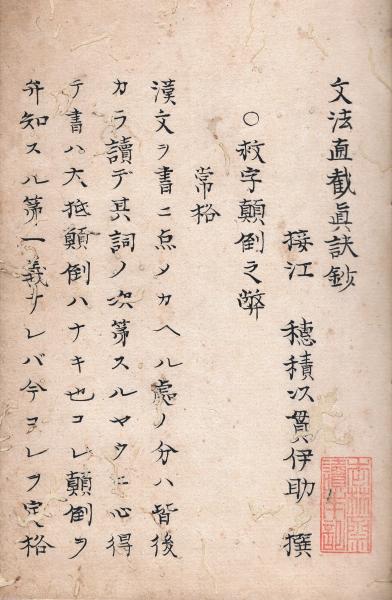 文法直截眞訣鈔
接江 穗積以貫伊助 撰
○救字顚倒之弊
常格
漢文ヲ書ニ点メカヘル處ノ分ハ皆後
カラ讀デ其詞ノ次第スルヤウニ心得
テ書ハ大抵顛倒ハナキ也コレ顛倒ヲ
弁知スル第一義ナレバ今コレヲ定格